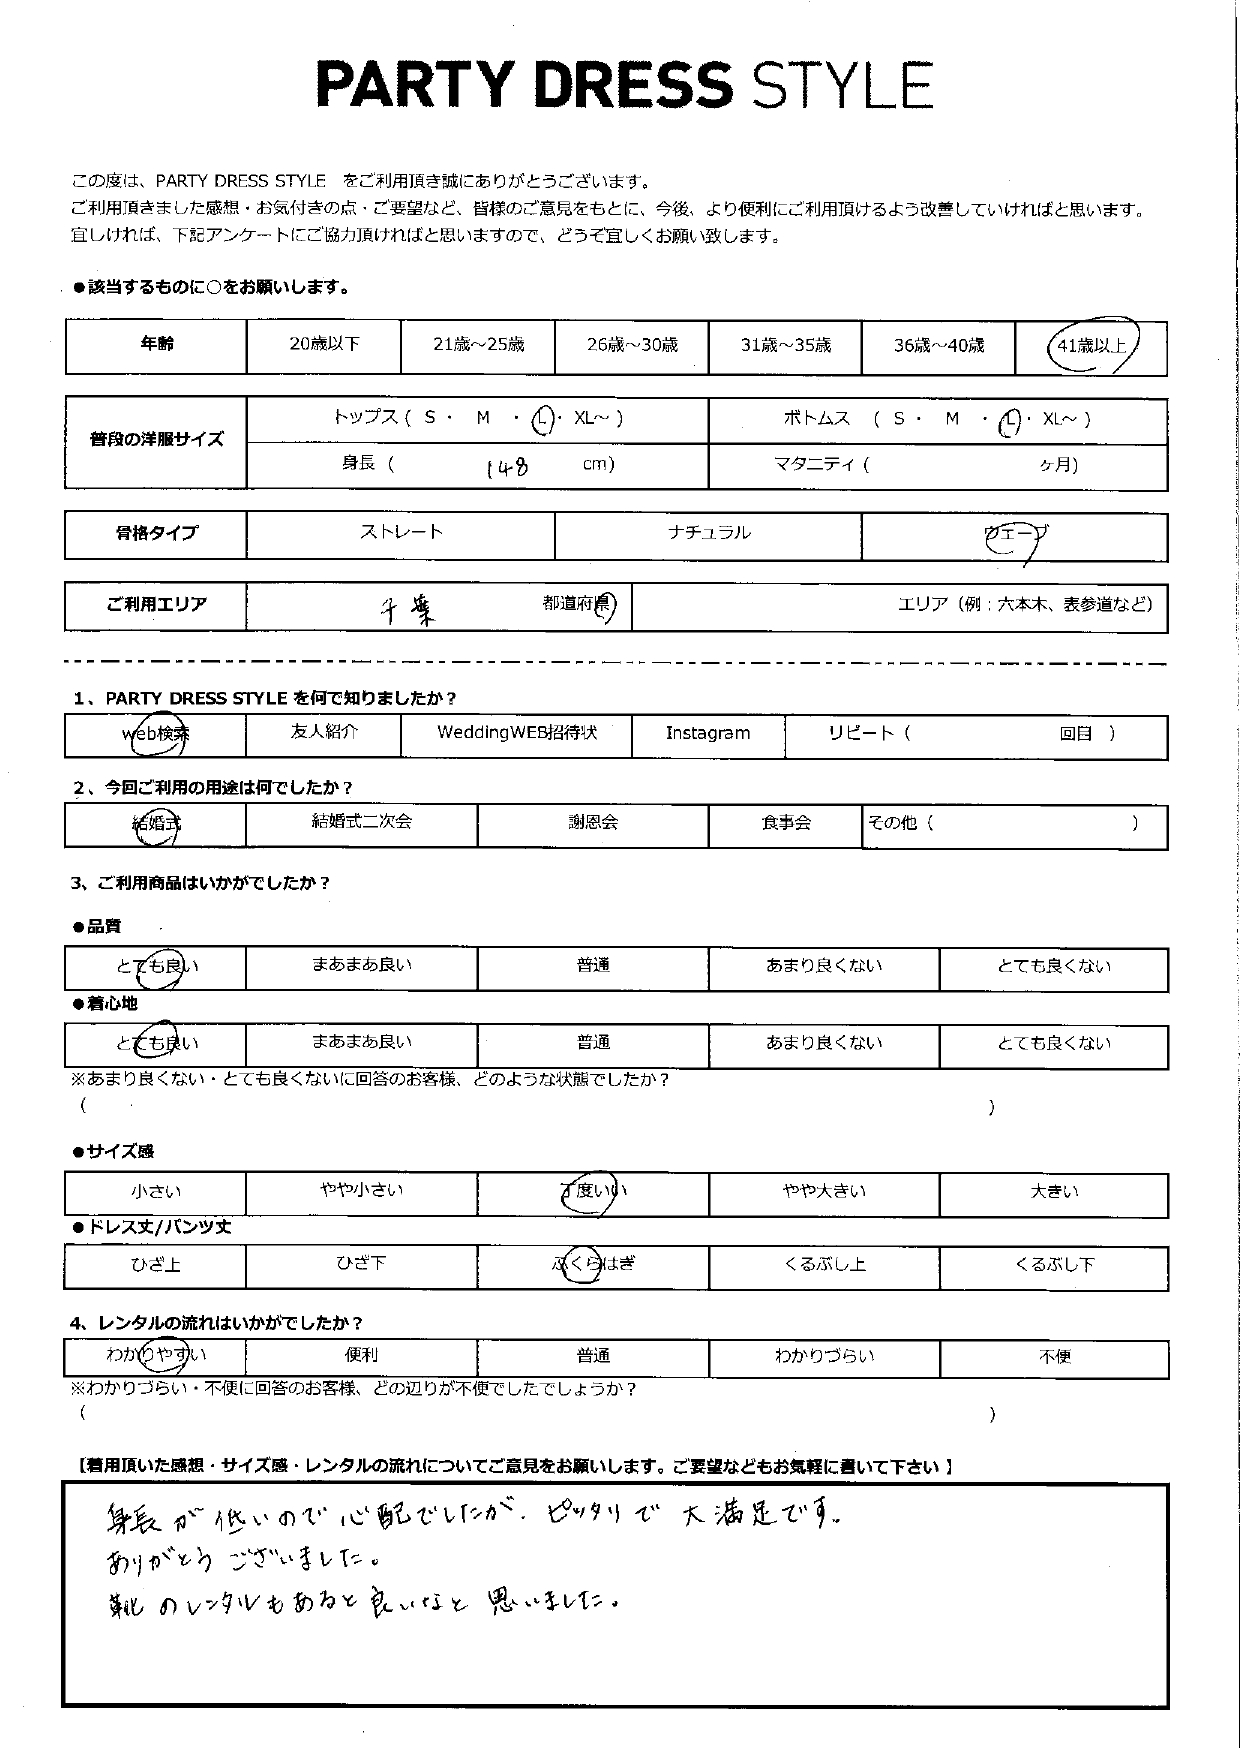 PARTY DRESS STYLE
この度は、PARTY DRESS STYLE をご利用頂き誠にありがとうございます。
ご利用頂きました感想・お気付きの点・ご要望など、皆様のご意見をもとに、今後、より便利にご利用頂けるよう改善していければと思います。
宜しければ、下記アンケートにご協力頂ければと思いますので、どうぞ宜しくお願い致します。
●該当するものに○をお願いします。
年齢 20歳以下 21歳～25歳 26歳～30歳 31歳～35歳 36歳～40歳 41歳以上
普段の洋服サイズ
トップス ( S ・ M ・ L ・ XL～ ) ボトムス ( S ・ M ・ L ・ XL～ )
身長 ( 148 cm) マタニティ ( ヶ月)
骨格タイプ ストレート ナチュラル ウェーブ
ご利用エリア 千葉 都道府県 エリア（例：六本木、表参道など）
1、PARTY DRESS STYLE を何で知りましたか？
web検索 友人紹介 WeddingWEB招待状 Instagram リピート ( 回目 )
2、今回ご利用の用途は何でしたか？
結婚式 結婚式二次会 謝恩会 食事会 その他 ( )
3、ご利用商品はいかがでしたか？
●品質
とても良い まあまあ良い 普通 あまり良くない とても良くない
●着心地
とても良い まあまあ良い 普通 あまり良くない とても良くない
※あまり良くない・とても良くないに回答のお客様、どのような状態でしたか？
( )
●サイズ感
小さい やや小さい 丁度いい やや大きい 大きい
●ドレス丈/パンツ丈
ひざ上 ひざ下 ふくらはぎ くるぶし上 くるぶし下
4、レンタルの流れはいかがでしたか？
わかりやすい 便利 普通 わかりづらい 不便
※わかりづらい・不便に回答のお客様、どの辺りが不便でしたでしょうか？
( )
【着用頂いた感想・サイズ感・レンタルの流れについてご意見をお願いします。ご要望などもお気軽に書いて下さい】
身長が低いので心配でしたが、ピッタリで大満足です。
ありがとうございました。
靴のレンタルもあると良いなと思いました。